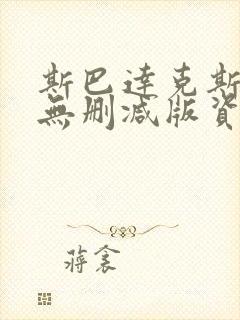 斯巴達克斯
無刪減版資
蔣衾